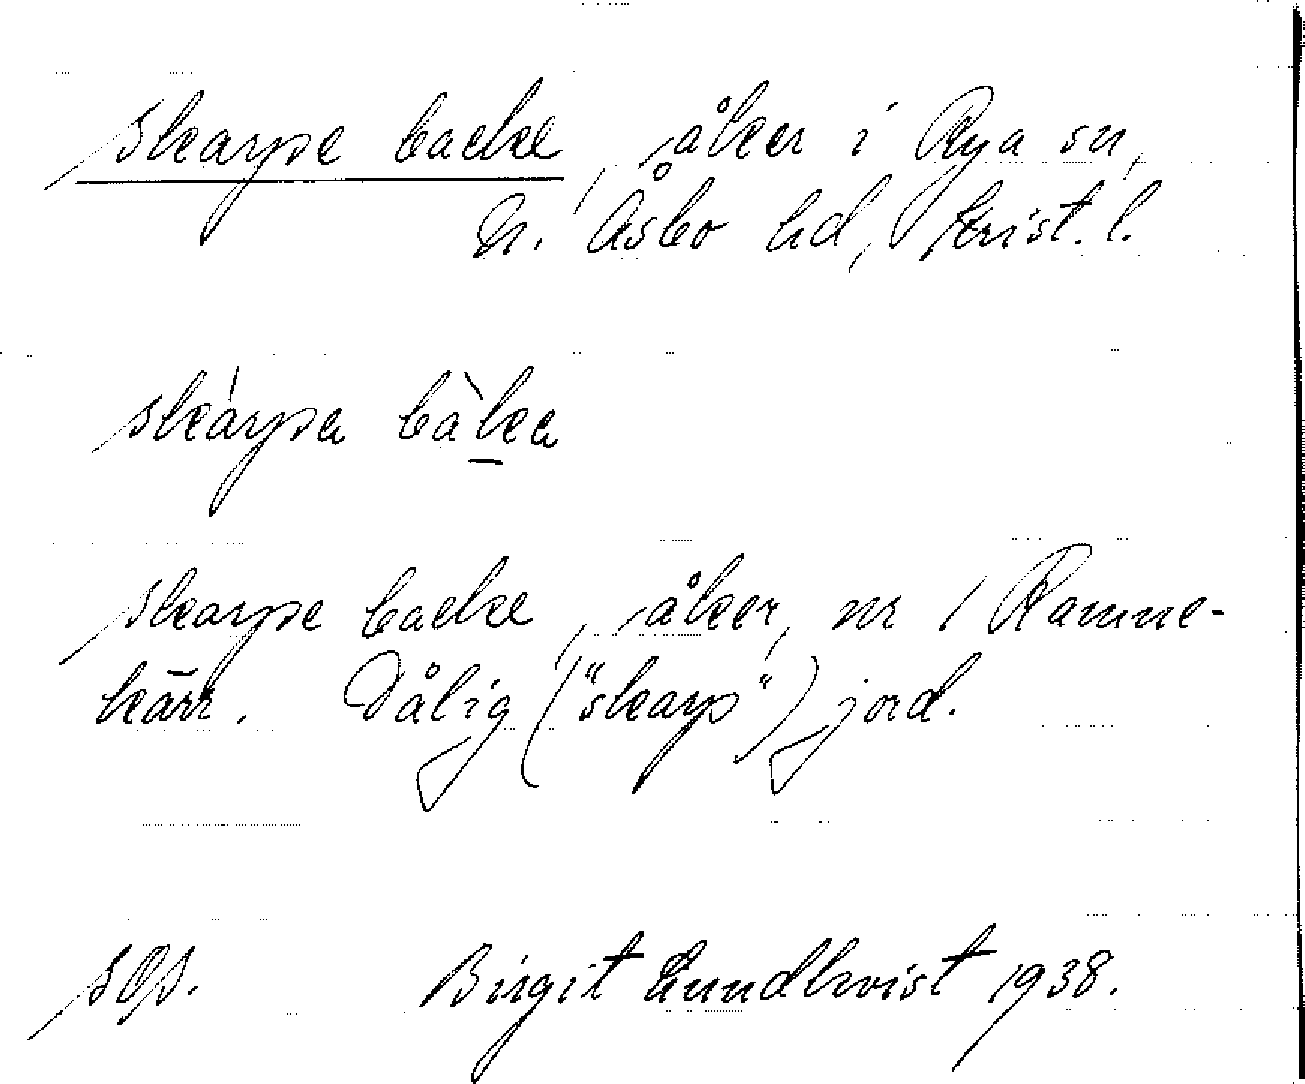 Skarpe backe, åker i Rya sn,
N. Åsbo hd, Krist. l.
skárpa bàka
Skarpe backe, åker, nr 1 Ramne-
kärr. Dålig ("skarp") jord.
Birgit Lundkvist 1938.